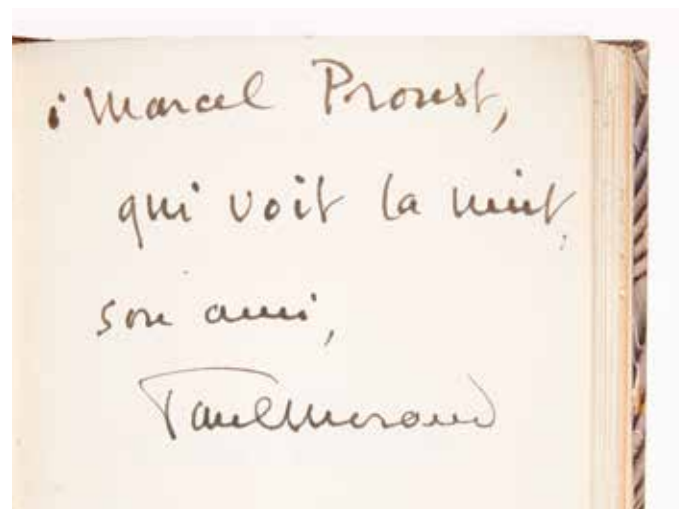 à Marcel Proust,
qui voit la nuit,
son ami,
Paul Morand